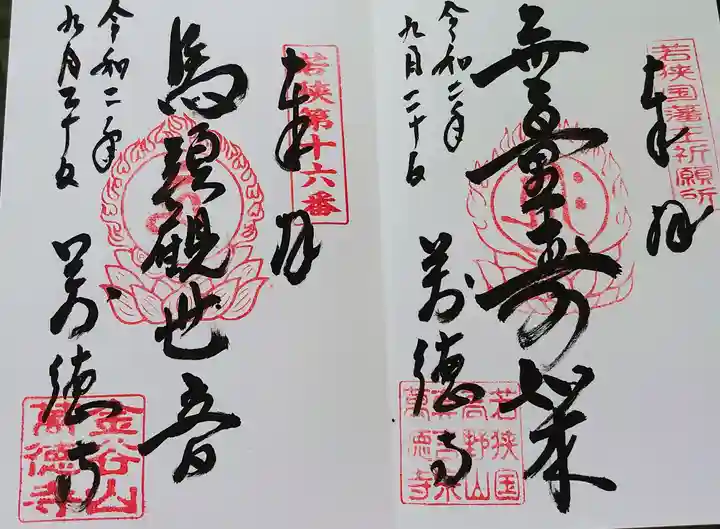 若狭国藩主祈願所
奉拝
無量寿殿
萬徳寺
令和二年
九月二十日
若狭国
萬徳寺
若狭第十六番
奉拝
馬頭観世音
萬徳寺
令和二年
九月二十日
金谷山
萬徳寺